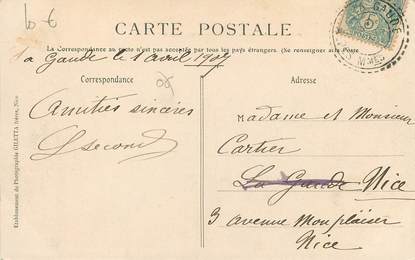 10 €
CARTE POSTALE
La Correspondance au recto n'est pas acceptée par tous les pays étrangers. (Se renseigner à la Poste
la Gaude le 1 avril 1907
Correspondance
Amitiés sincères
Second
Adresse
Madame et Monsieur
Cartier
La Gaude Nice
3 avenue Monplaisir
Nice
GAUDE
Etablissement de Photographie GILETTA frères, Nice